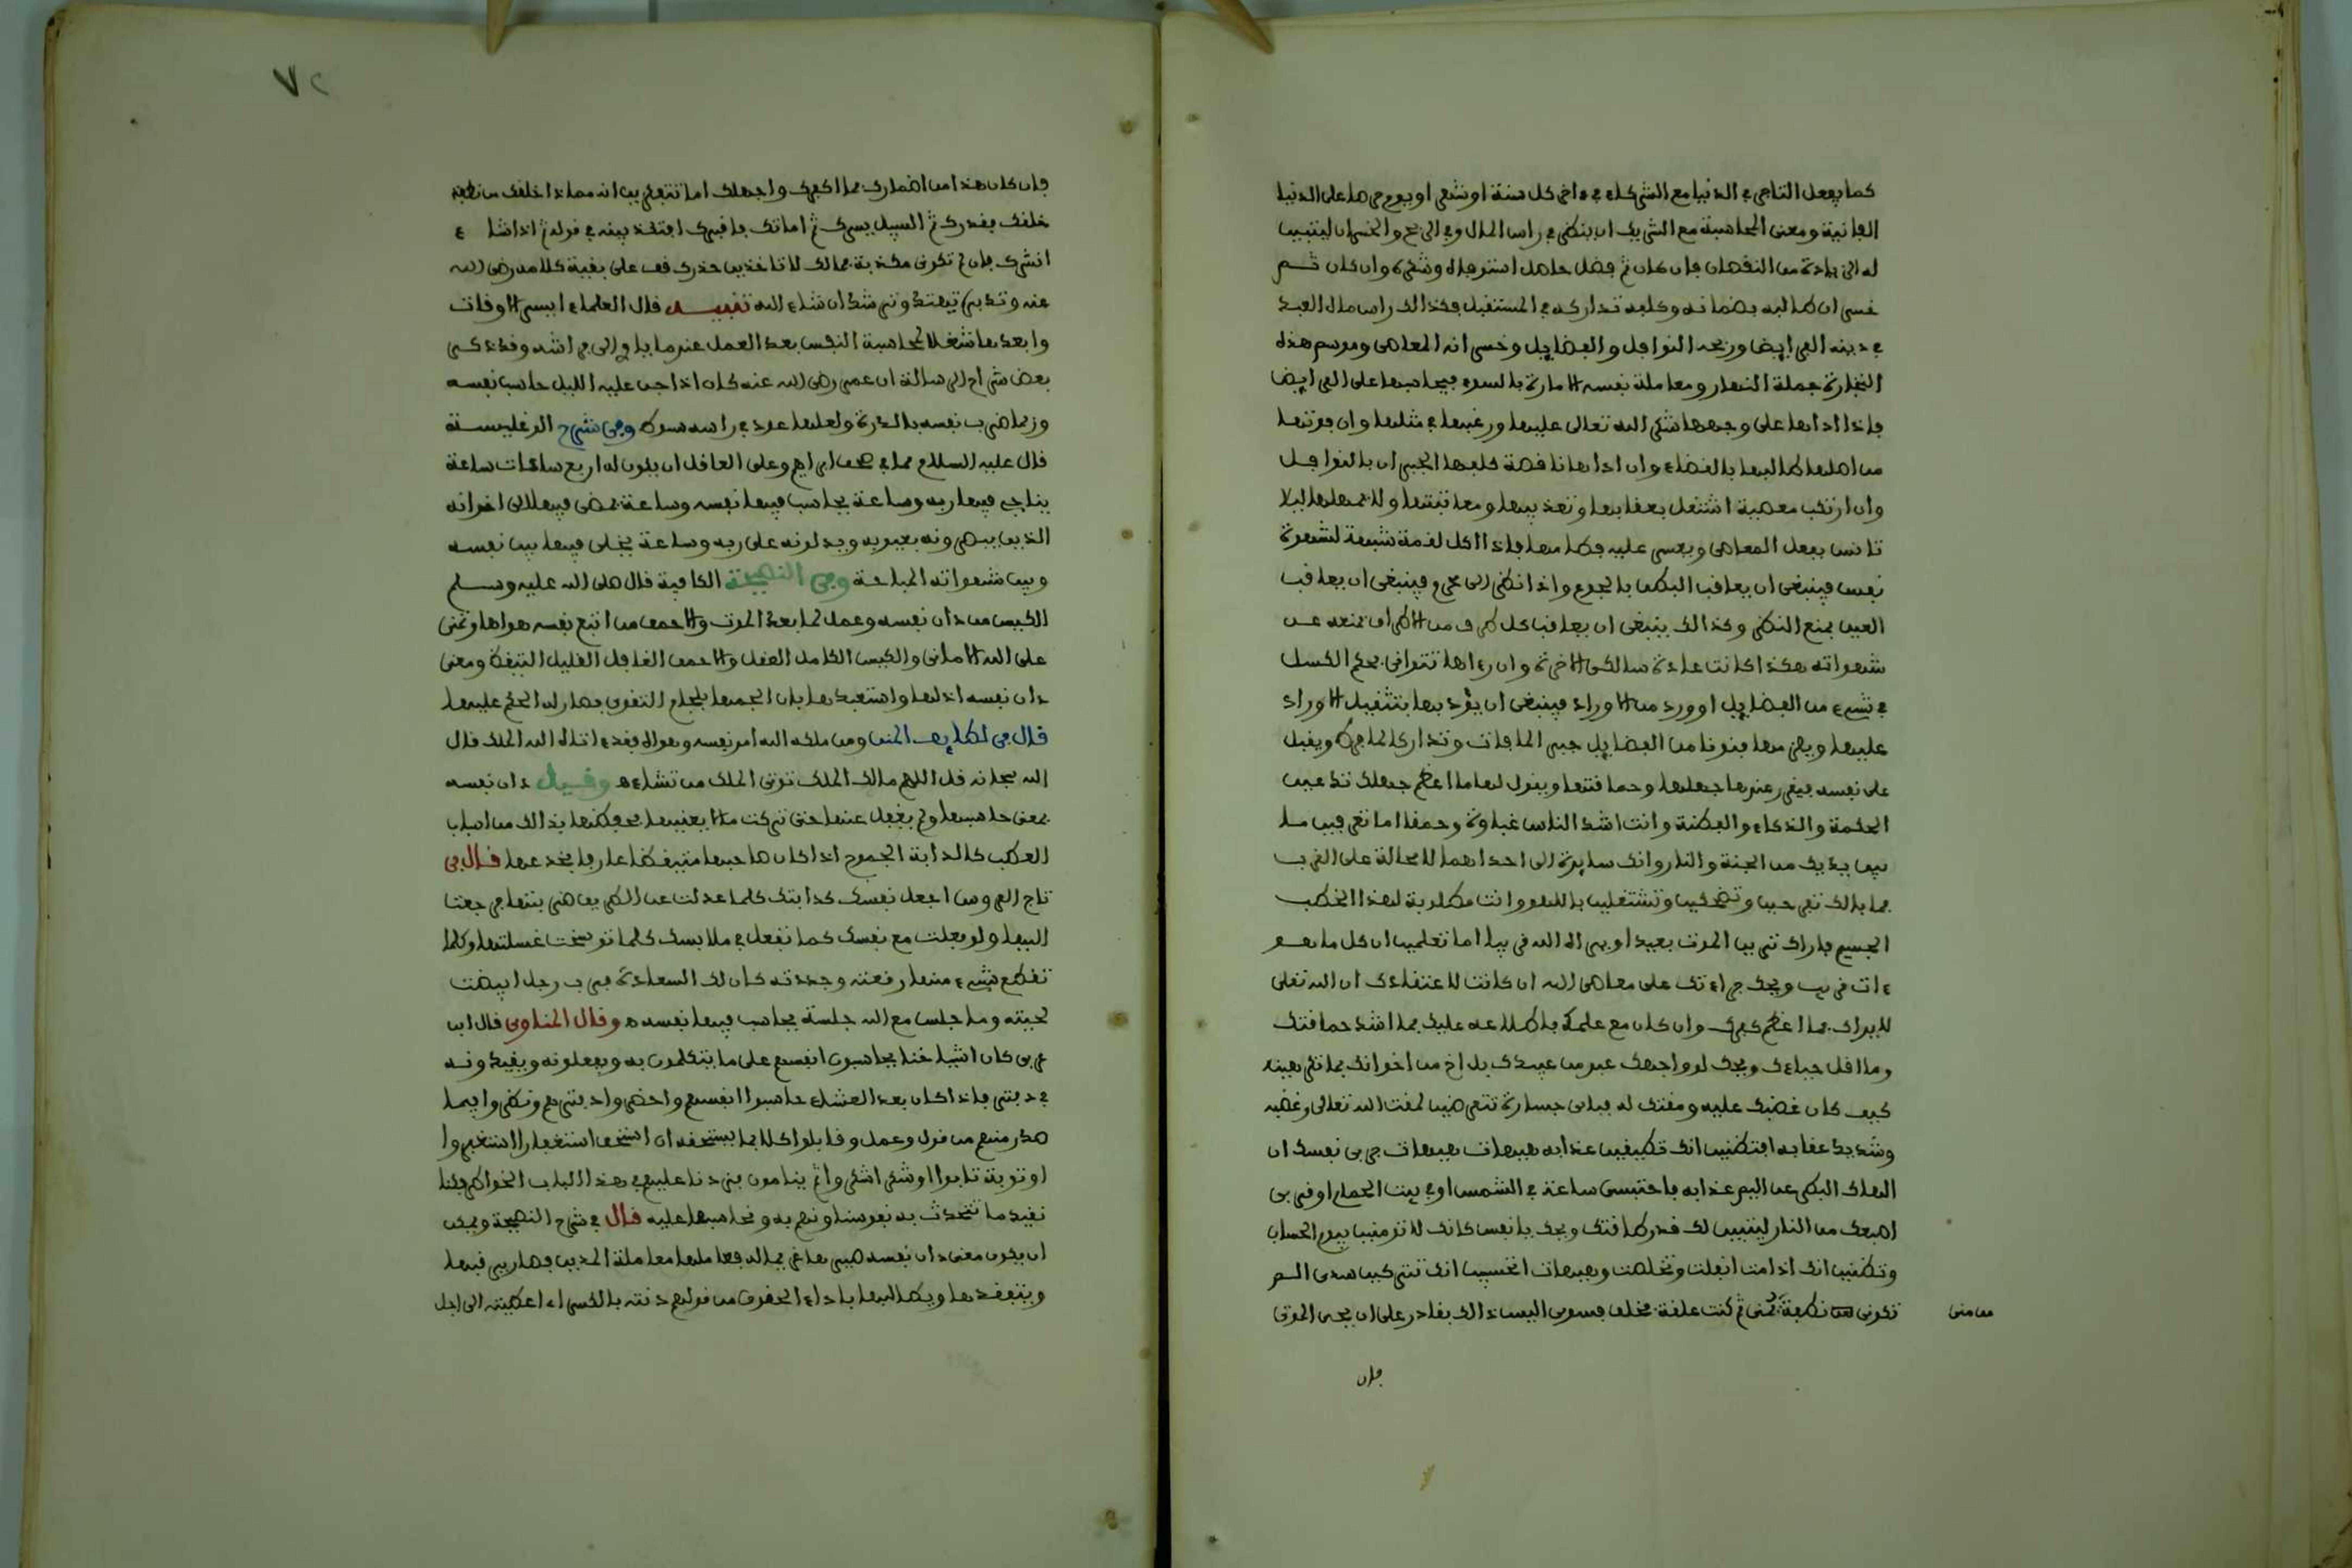 كما يفعل التاجر في الدنيا مع الشركاء في ءاخر كل سنة او شهر او يوم حرصا على الدنيا
الفانية ومعنى المحاسبة مع الشريك ان ينظر في راس المال وفي الربح والخسران ليتبين
له الزيادة من النقصان فإن كان ثم فضل حاصل استوفاه وشكره وان كان ثم
خسران طالبه بضمانه وكلفه تداركه في المستقبل فكذالك راس مال العبد
في دينه الفرايض وربحه النوافل والفضايل وخسرانه المعاصى وموسم هذه
التجارة جملة النهار ومعاملة نفسه الامارة بالسوء فيحاسبها على الفرايض
فإذا اداها على وجهها شكر الله تعالى عليها ورغبها في مثلها وان فوتها
من اصلها طالبها بالقضاء وان اداها ناقصة كلفها الجبران بالنوافل
وان ارتكب معصية اشتغل بعقابها وتعذيبها ومعاتبتها ولا يمهلها ليلا
تانس بفعل المعاصى ويعسر عليه فطامها فإذا اكل لقمة شبهة لشهوة
نفس فينبغى ان يعاقب البطن بالجوع واذا نظر الى محرم فينبغى ان يعاقب
العين بمنع النظر وكذالك ينبغى ان يعاقب كل طرف من الاطراف بمنعه عن
شهواته هكذا كانت عادة سالكى الاخرة وان رءاها تتوانى بحكم الكسل
في شىء من الفضايل او ورد من الاوراد فينبغى ان يؤدبها بتثقيل الاوراد
عليها ويلزمها فنونا من الفضايل جبرا لما فات وتداركا لما فرط ويقبل
على نفسه فيقرر عندها جهلها وحماقتها ويقول لها ما اعظم جهلك تدعين
الحكمة والذكاء والفطنة وانت اشد الناس غباوة وحمقا اما تعرفين ما
بين يديك من الجنة والنار وانك سايرة الى احداهما لا محالة على القرب
فما بالك تفرحين وتضحكين وتشتغلين باللهو وانت مطلوبة لهذا الخطب
الجسيم فاراك ترين الموت بعيدا ويراه الله قريبا اما تعلمين ان كل ما هو
ءات قريب ويحك جراءتك على معاصى الله ان كانت لاعتقادك ان الله تعلى
لا يراك فما اعظم كفرك وان كان مع علمك باطلاعه عليك فما اشد حماقتك
وما اقل حياءك ويحك لو واجهك عبد من عبيدك بل اخ من اخوانك بما تكرهينه
كيف كان غضبك عليه ومقتك له فباى جسارة تتعرضين لمقت الله تعالى وغضبه
وشديد عقابه افتظنين انك تطيقين عذابه هيهات هيهات جربى نفسك ان
الهاك البطر عن اليم عذابه فاحتبسى ساعة في الشمس او في بيت الحمام او قربى
اصبعك من النار ليتبين لك قدر طاقتك ويحك يا نفس كانك لا تومنين بيوم الحساب
وتظنين انك اذا مت انفلت وتخلصت وهيهات اتحسبين انك تتركين سدى الم
تكونى نطفة تمنى ثم كنت علقة فخلق فسوى اليس ذالك بقادر على ان يحى الموتى
من منى
فإن
٧٢
فإن كان هذا من اضمارك فما اكفرك واجهلك اما تتفكرين انه مماذا خلقك من نطفة
خلقك فقدرك ثم السبيل يسرك ثم اماتك فاقبرك افتكذبينه في قوله ثم اذا شاء
انشرك فإن لم تكونى مكذبة فمالك لا تاخذين حذرك قف على بقية كلامه رضى الله
عنه وتدبره تهتد وترشد ان شاء الله تنبيه قال العلماء ايسر الاوقات
وابعدها شغلا لمحاسبة النفس بعد العمل عندما ياوى الى فراشه وقد ذكر
بعض شراح الرسالة ان عمر رضى الله عنه كان اذا جن عليه الليل حاسب نفسه
وربما ضرب نفسه بالدرة ولعلها عود في راسه سوط وفي شرح الوغليسية
قال عليه السلام مما في صحف ابراهيم وعلى العاقل ان يكون له اربع ساعات ساعة
يناجى فيها ربه وساعة يحاسب فيها نفسه وساعة يمضى فيها الى اخوانه
الذين يبصرونه بعيوبه ويدلونه على ربه وساعة يخلى فيها بين نفسه
وبين شهواته المباحة وفي النصيحة الكافية قال صلى الله عليه وسلم
الكيس من دان نفسه وعمل لما بعد الموت والاحمق من اتبع نفسه هواها وتمنى
على الله الامانى والكيس الكامل العقل والاحمق الغافل القليل التيقظ ومعنى
دان نفسه اذلها واستعبدها بان الجمها بلجام التقوى فصار له الحكم عليها
قال في لطايف المنن ومن ملكه الله امر نفسه وهواه فقد ءاتاه الله الملك قال
الله سبحانه قل اللهم مالك الملك توتى الملك من تشاء ه وقيل دان نفسه
بمعنى حاسبها ولم يغفل عنها حتى تركت ما لا يعنيها فحفظها بذالك من اسباب
العطب كالدابة الجموح اذا كان صاحبها متيقظا عارفا بخدعها قال في
تاج العروس اجعل نفسك كدابتك كلما عدلت عن الطريق ضربتها فرجعت
اليها ولو فعلت مع نفسك كما تفعل في ملابسك كلما توسخت غسلتها وكلما
تقطع شىء منها رقعته وجددته كان لك السعادة فرب رجل ابيضت
لحيته وما جلس مع الله جلسة يحاسب فيها نفسه ه وقال المناوى قال ابن
عربى كان اشياخنا يحاسبون انفسهم على ما يتكلمون به ويفعلونه ويقيدونه
في دفتر فإذا كان بعد العشاء حاسبوا انفسهم واحضروا دفترهم ونظروا فيما
صدر منهم من قول وعمل وقابلوا كلا بما يستحقه ان استحق استغفارا استغفروا
او توبة تابوا او شكرا شكروا ثم ينامون فزدنا عليهم في هذا الباب الخواطر فكنا
نقيد ما نتحدث به نفوسنا ونهم به ونحاسبها عليه قال في شرح النصيحة ويمكن
ان يكون معنى دان نفسه صيرها غريما له فعاملها معاملة المدين فصار يرفبها
ويتفقدها ويطالبها باداء الحقوق من قولهم دنته بالكسر اى اعطيته الى اجل